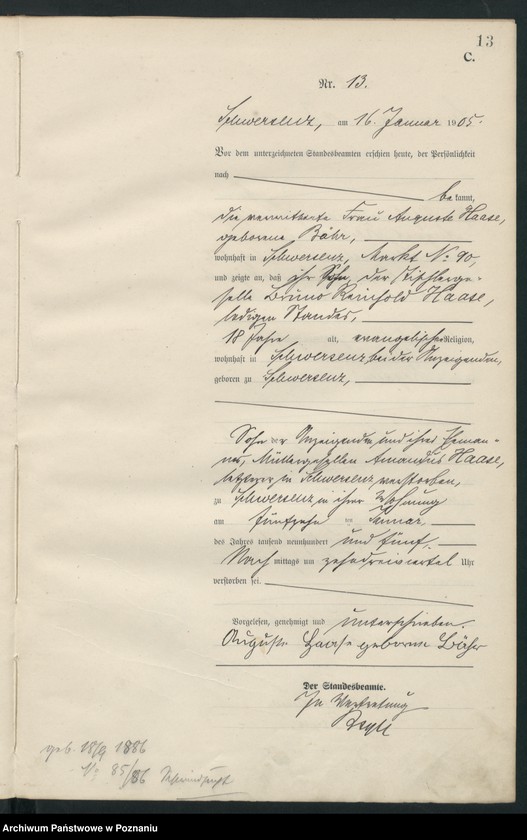 13
C.
Nr. 13.
Schwersenz, am 16. Januar 1905.
Vor dem unterzeichneten Standesbeamten erschien heute, der Persönlichkeit
nach
bekannt,
die verwittwete Frau Auguste Haase,
geborene Bähr,
wohnhaft in Schwersenz, Markt No 90,
und zeigte an, daß ihr Sohn, der Tischlerge-
selle Bruno Reinhold Haase,
ledigen Standes,
18 Jahre alt, evangelischer Religion,
wohnhaft in Schwersenz bei der Anzeigenden,
geboren zu Schwersenz,
Sohn der Anzeigenden und ihres Eheman-
nes, Müllergesellen Amandus Haase,
letzterer in Schwersenz verstorben,
zu Schwersenz in ihrer Wohnung
am fünfzehn ten Januar,
des Jahres tausend neunhundert und fünf,
Nach mittags um zehndreiviertel Uhr
verstorben sei.
Vorgelesen, genehmigt und unterschrieben.
Auguste Haase geborene Bähr
Der Standesbeamte.
In Vertretung
geb. 18/9 1886
No 85/86 Schwindsucht
Archiwum Państwowe w Poznaniu